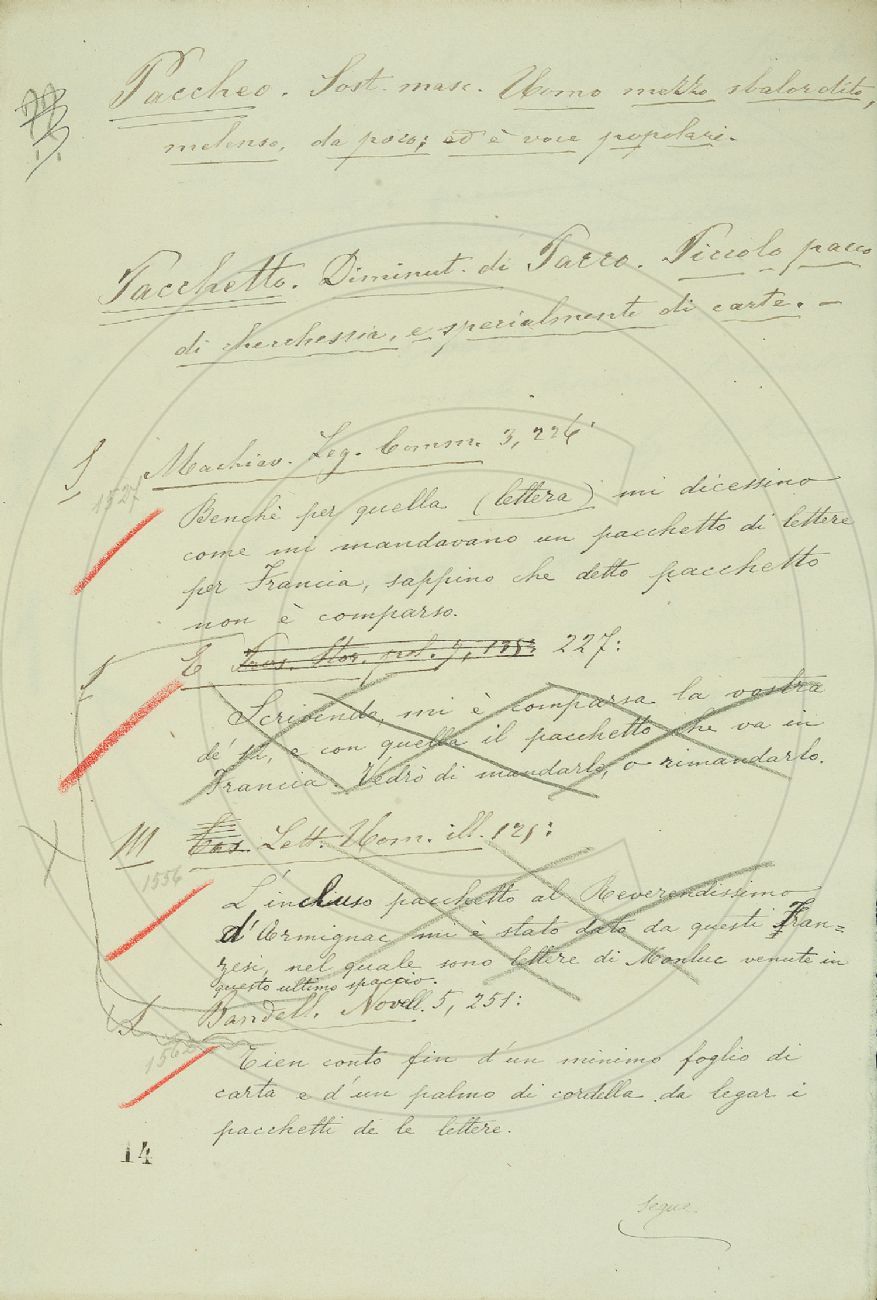 Paccheo. Sost. masc. Uomo mezzo sbalordito,
melenso, da poco; ed è voce popolari.
Pacchetto. Diminut. di Pacco. Piccolo pacco
di checchessia, e specialmente di carte. —
Machiav. Leg. Comm. 3, 226:
1527
Benchè per quella (lettera) mi dicessino
come mi mandavano un pacchetto di lettere
per Francia, sappino che detto pacchetto
non è comparso.
E 227:
Scrivendo, mi è comparsa la vostra
de' , e con quella il pacchetto che va in
Francia. Vedrò di mandarlo, o rimandarlo.
III Lett. Uom. ill. 121:
1556
L'incluso pacchetto al Reverendissimo
d'Armignac mi è stato dato da questi Fran=
zesi, nel quale sono lettere di Monluc venute in
questo ultimo spaccio.
Bandell. Novell. 5, 251:
Tien conto fin d'un minimo foglio di
carta e d'un palmo di cordella da legar i
pacchetti de le lettere.
14
segue